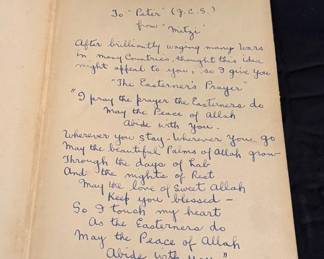 To "Peter" (J.C.S.)
from "Mitzi"
After brilliantly waging many Wars
in many Countries, thought this idea
might appeal to you, so I give you
"The Easterner's Prayer"
"I pray the prayer the Easterners do
May the Peace of Allah
Abide with you.
Wherever you stay - Wherever you go
May the beautiful Palms of Allah grow
Through the days of Lab
And the nights of Rest
May the love of Sweet Allah
Keep you blessed -
So I touch my heart
As the Easterners do
May the Peace of Allah
Abide with you"